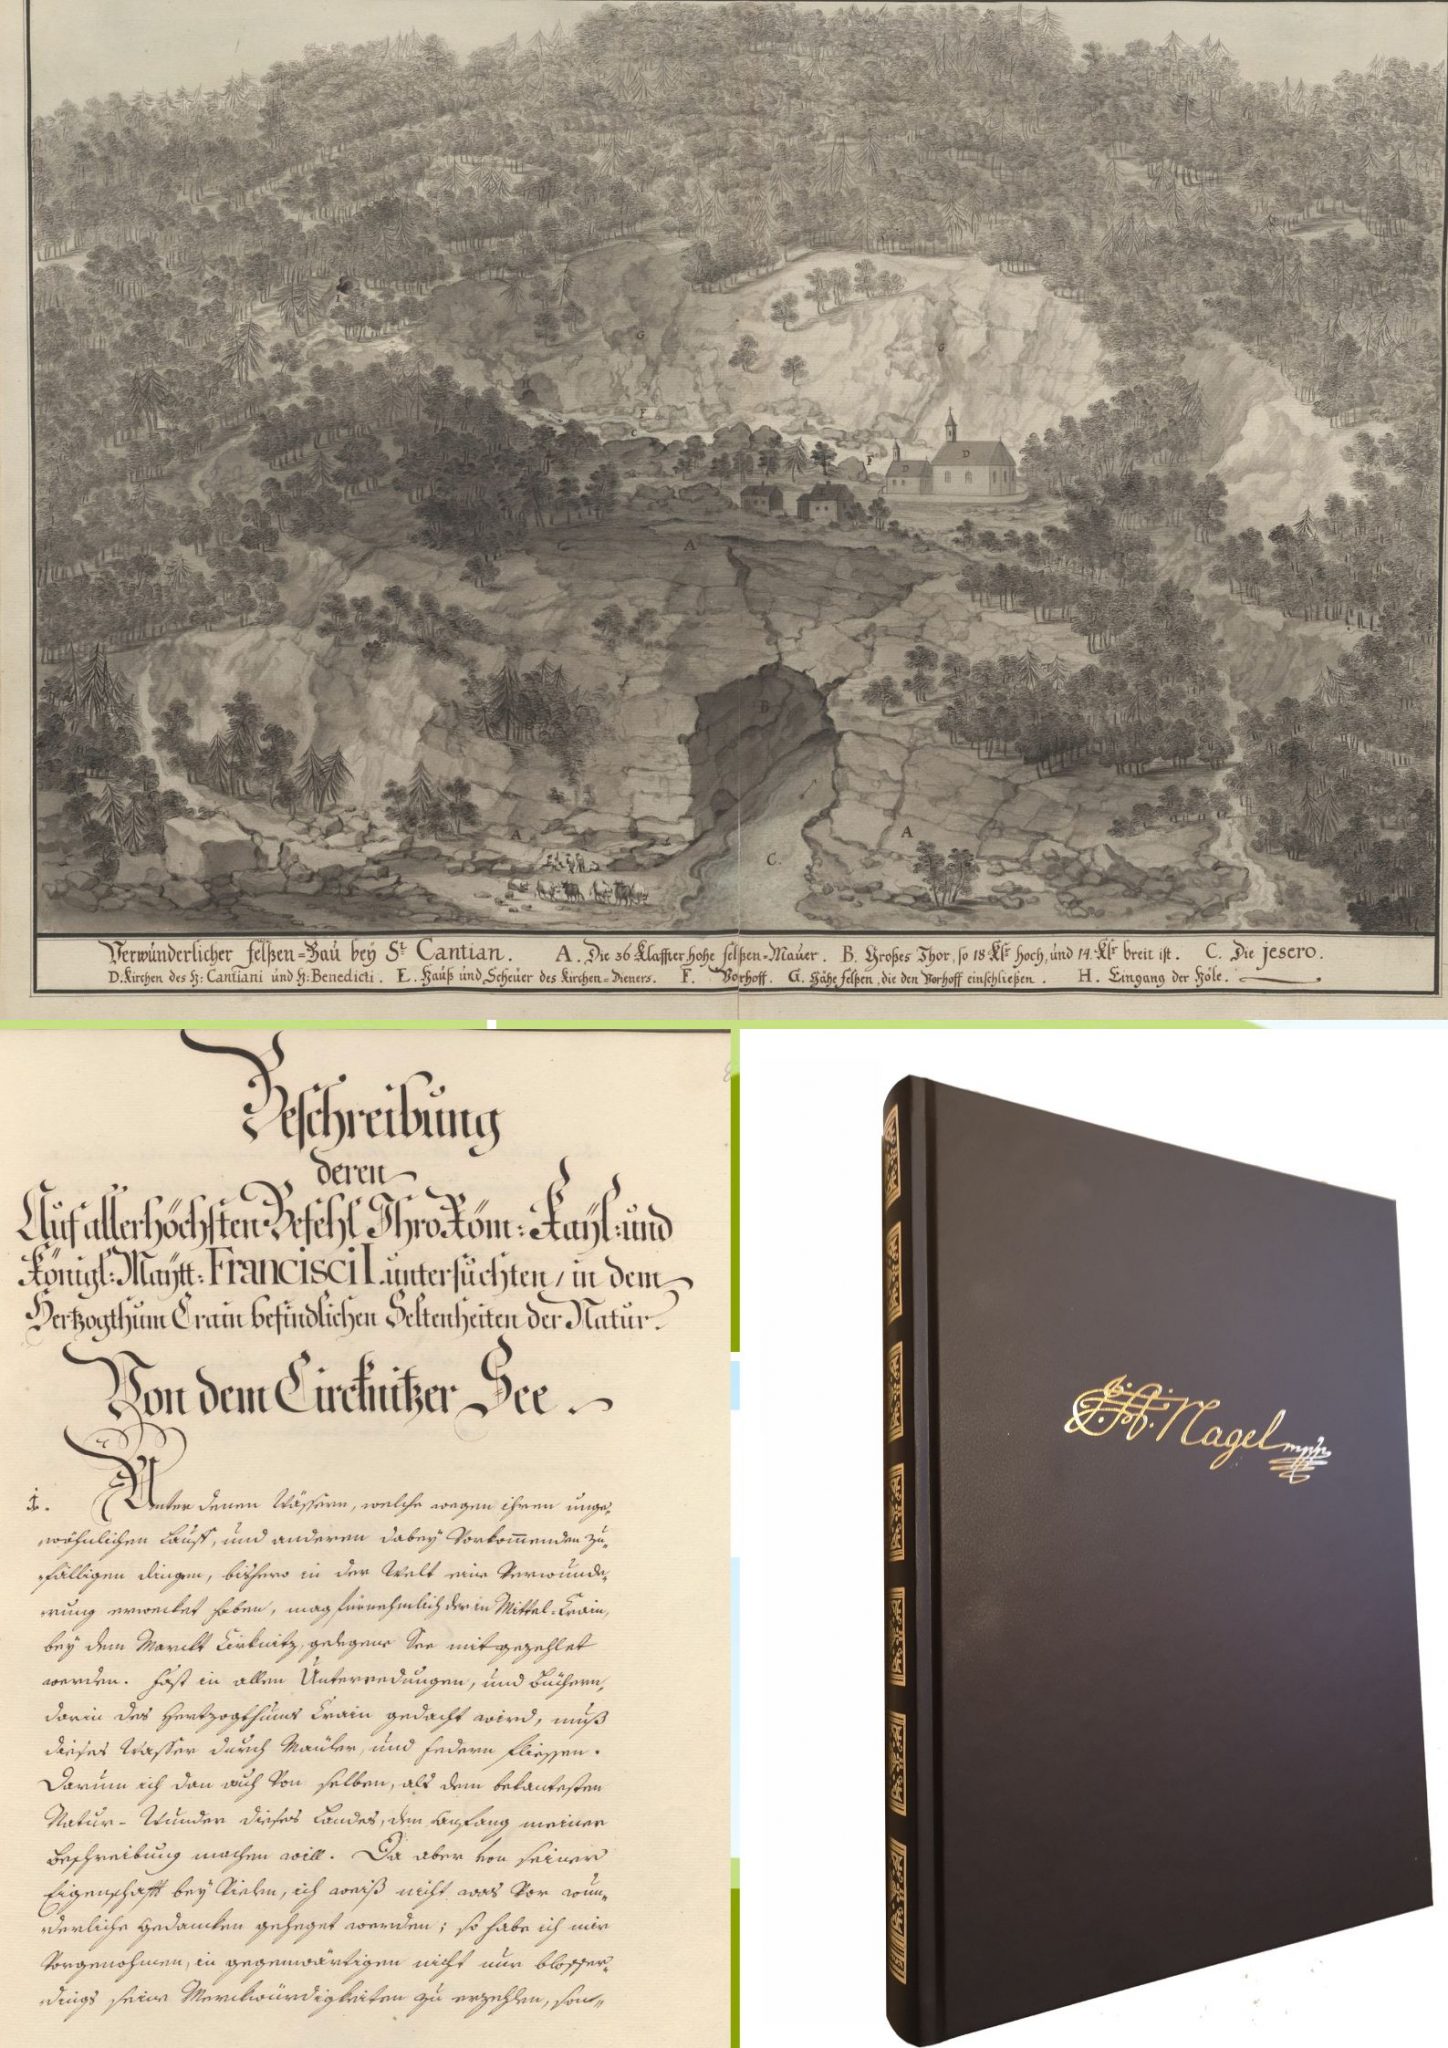 Verwunderlicher felßen=Bau bey St Cantian. A. Die 36 Klaffter hohe felßen=Mauer. B. Großes Thor, so 18 Klfr hoch, und 14. Klfr breit ist. C. Die jesero.
D. Kirchen des H: Cantiani und H: Benedicti. E. Hauß und Scheuer des Kirchen=Dieners. F. Vorhoff. G. Hähe felßen, die den Vorhoff einschließen. H. Eingang der Höle.
Beschreibung
deren
Auf allerhöchsten Befehl Ihro Röm: Kaÿl: und
Königl: Maÿtt: Francisci I. untersuchten, in dem
Hertzogthum Crain befindlichen Seltenheiten der Natur.
Von dem Circknitzer See.
1. Unter denen Wässern, welche wegen ihren unge=
wöhnlichen Lauff, und anderen dabey vorkommenden zu=
fälligen dingen, bishero in der Welt eine Verwunde=
rung erwecket haben, mag fürnehmlich der in Mittel=Crain,
bey dem Marckt Cirknitz, gelegene See mitgezehlet
werden. Fast in allen Unterredungen, und Büchern,
darin des Hertzogthums Crain gedacht wird, muß
dieses Wasser durch Mäuler, und federn fliessen.
Darum ich dan auch von selben, als dem bekantesten
Natur=Wunder dieses Landes, den Anfang meiner
Beschreibung machen will. Da aber von seiner
Eigenschafft bey vielen, ich weiß nicht was vor wun=
derliche Gedancken geheget werden; so habe ich mir
vorgenohmen, in gegenwärtigen nicht nur blosser=
dings seine Merckwürdigkeiten zu erzehlen, son=
Nagel